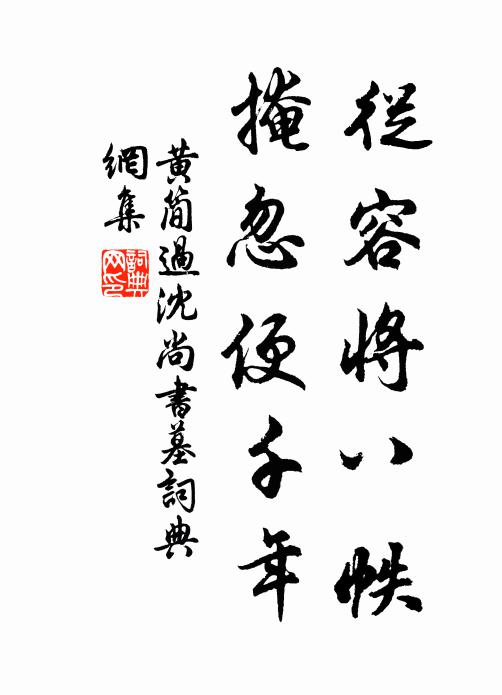 從容將八帙
掩忽便千年
黄简過沈尚書墓詞典
網集
詞典
网印